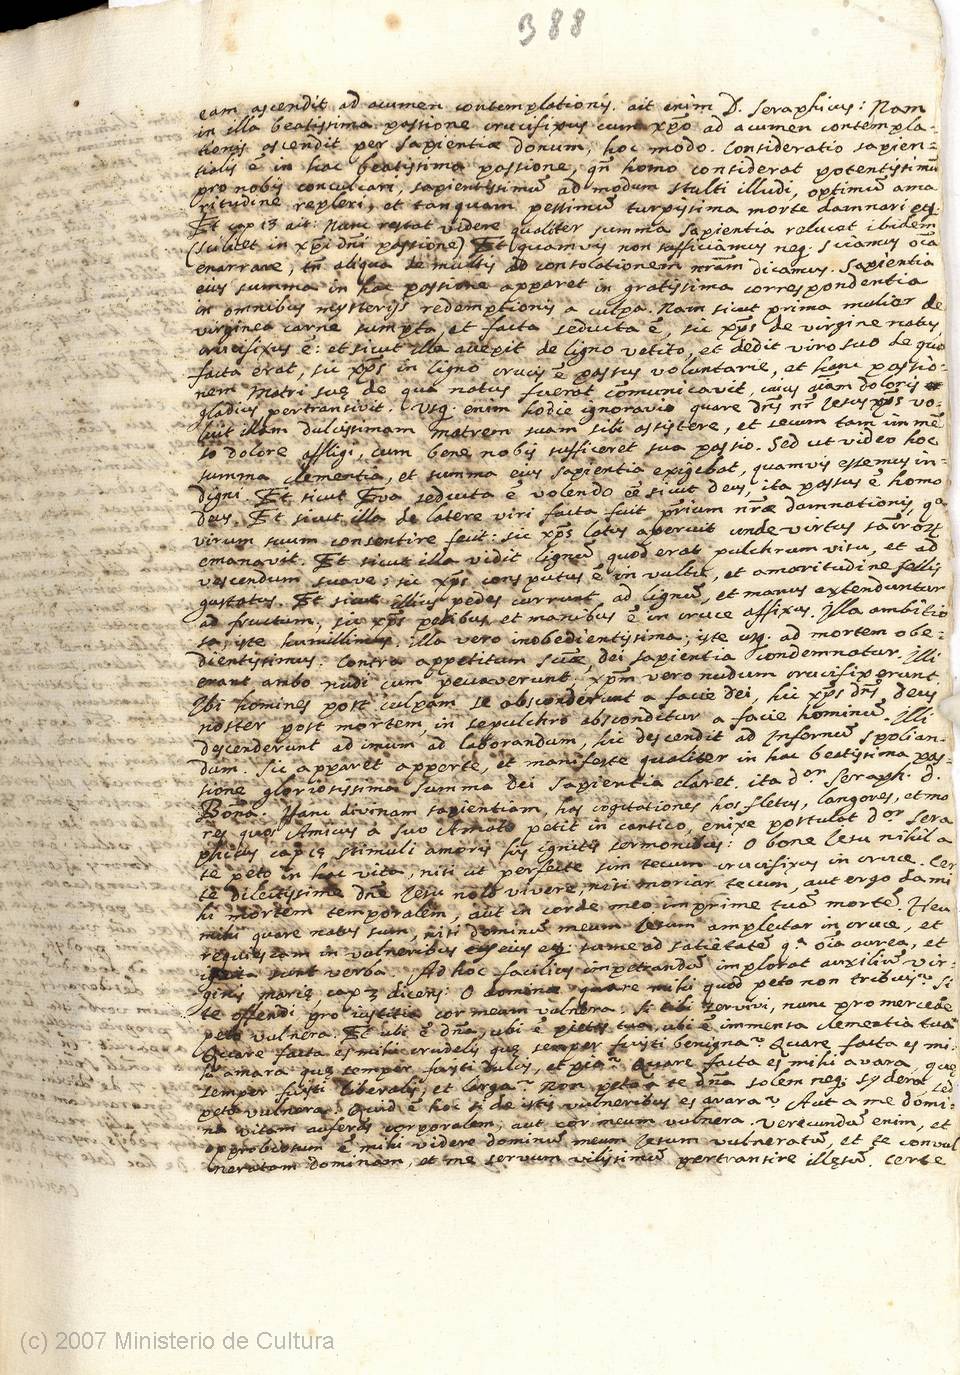 388
eam ascendit ad acumen contemplationis. ait enim D. Seraphicus: Nam
in illa beatissima passione crucifixus cum xp̃o ad acumen contempla-
tionis ascendit per sapientiæ donum, hoc modo. Consideratio sapien-
tialis ẽ in hac beatissima passione, qñ homo considerat potentissimũ
pro nobis conculcari, sapientissimũ ad modum stulti illudi, optimũ ama
ritudine repleri, et tanquam pessimũ turpissima morte damnari
Et cap 13 ait: Nunc restat videre qualiter summa sapientia reluceat ibidem
(scilicet in xp̃i dñi passione) Et quamvis non sufficiamus neq. sciamus oĩa
enarrare, tñ aliqua de multis ad consolationem nrãm dicamus. Sapientia
eius summa in hac passione apparet in gratissima correspondentia
in omnibus mysterijs redemptionis a culpa. Nam sicut prima mulier de
virginea carne sumpta, et facta seducta ẽ, sic xp̃s de virgine natus
crucifixus ẽ: et sicut illa accepit de ligno vetito, et dedit viro suo de quo
facta erat, sic xp̃s in ligno crucis ẽ passus voluntarie, et hanc passio-
nem Matri suę de qua natus fuerat cõmunicavit, cuius aĩam doloris
gladius pertransivit. Usq. enim hodie ignoravi quare dñs nr̃ Jesus xp̃s vo-
luit illam dulcissimam matrem suam sibi assistere, et secum tam im mẽ
so dolore affligi, cum bene nobis sufficeret sua passio. Sed ut video hoc
summa clementia, et summa eius sapientia exigebat, quamvis essemus in-
digni. Et sicut Eva seducta ẽ volendo eẽ sicut deus, ita passus ẽ homo
deus. Et sicut illa de latere viri facta fuit prĩum nrãe damnationis, qa
virum suum consentire fecit: sic xp̃s latus aperuit unde virtus
emanavit. Et sicut illa vidit lignũ quod erat pulchrum visu, et ad
vescendum suave: sic xp̃s consputus ẽ in vultu, et amaritudine fellis
gustatus. Et sicut illius pedes currunt ad lignũ, et manus extenduntur
ad fructum, sic xp̃s pedibus, et manibus ẽ in cruce affixus. Illa ambitio
sa, iste humillimus: illa vero inobedientissima, iste usq. ad mortem obe-
dientissimus: Contra appetitum scĩæ, dei sapientia condemnatur. Illi
erant ambo nudi cum peccaverunt: xp̃m vero nudum crucifixerunt
Ibi homines post culpam se absconderunt a facie dei, hic xp̃s dñs deus
noster post mortem, in sepulchro absconditur a facie hominũ. Illi
descenderunt ad imum ad laborandum, hic descendit ad Infernũ spolian-
dum. Sic apparet aperte, et manifeste qualiter in hac beatissima pas-
sione gloriosissima summa dei sapientia claret. ita dor Seraph. d.
Bõna. Hanc divinam sapientiam, has cogitationes hos fletus, langores, et mo
res quos Amicus a suo Amato petit in cantico, enixe postulat dor Sera
phicus cap stimuli amoris his ignitis sermonibus: O bone Jesu nihil a
te peto in hac vita, nisi ut perfecte sim tecum crucifixus in cruce. Cer
te dilectissime dñe Jesu nolo vivere, nisi moriar tecum, aut ergo da mi
hi mortem temporalem, aut in corde meo imprime tuã mortẽ. Heu
mihi quare natus sum, nisi dominũ meum Jesum amplectar in cruce, et
requiescam in vulneribus eius sume ad satietatẽ qa oĩa aurea, et
sunt verba. Ad hoc facilius impetrandũ implorat auxiliũ vir-
ginis marię, cap 3 dicens: O domina quare mihi quod peto non tribuis? Si
te offendi pro iustitia cor meum vulnera. Si tibi servivi, nunc pro mercede
peto vulnera. Et ubi ẽ dña, ubi ẽ pietas tua, ubi ẽ immensa clementia tua?
Quare facta es mihi crudelis quę semper fuisti benigna? Quare facta es mi-
hi amara quę semper fuisti dulcis, et pia? Quare facta es mihi avara, quę
semper fuisti liberalis, et larga? Non peto a te dña solem neq. sydera sed
peto vulnera. Quid ẽ hoc si de istis vulneribus es avara? Aut a me domi-
na vitam auferas corporalem, aut cor meum vulnera. Verecundũ enim, et
opprobriosum ẽ mihi videre dominũ meum Jesum vulneratũ, et te convul
neratam dominam, et me servum vilissimũ pertransire illęsũ. Certe
(c) 2007 Ministerio de Cultura